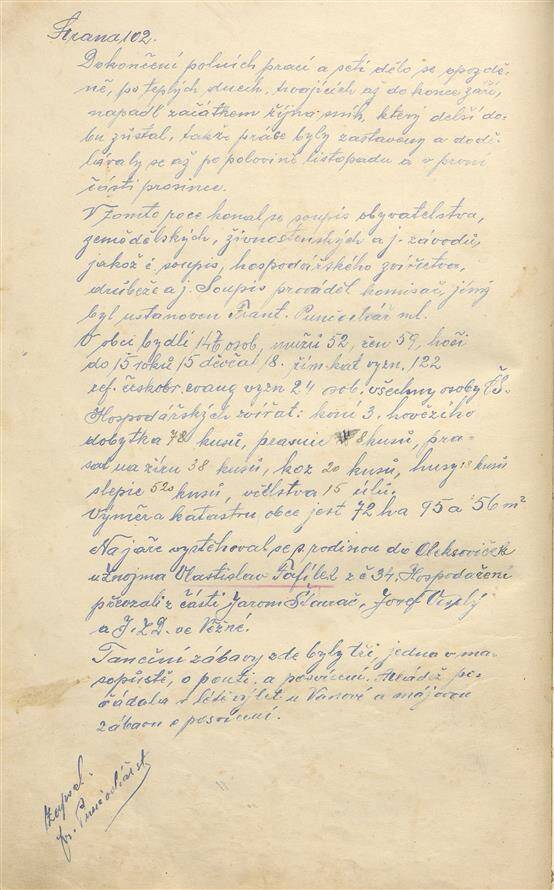 Strana 102.
Dokončení polních prací a setí dělo se opozdě-
ně, po teplých dnech, trvajících až do konce září,
napadl začátkem října sníh, který delší do-
bu zůstal, takže práce byly zastaveny a dodě-
lávaly se až po polovině listopadu a v první
části prosince.
V tomto roce konal se soupis obyvatelstva,
zemědělských, živnostenských a j. závodů,
jakož i soupis, hospodářského zvířectva,
drůbeže a j. Soupis prováděl komisař, jímž
byl ustanoven Frant. Punčochář ml.
V obci bydlí 146 osob, mužů 52, žen 59, hochů
do 15 roků 15 děvčat 18. řím. kat vyzn. 122
ref. českobr. evang vyzn 24 osob, všechny osoby čs.
Hospodářských zvířat: koní 3. hovězího
dobytka 78 kusů, prasnic 8 kusů, pra-
sat na žíru 38 kusů, koz 20 kusů, husy kusů
slepic 520 kusů, včelstva 15 úlů.
Výměra katastru obce jest 72 ha 95 a 56 m²
Na jaře vystěhoval se s rodinou do Oleksoviček
u Znojma Vlastislav z č 34. Hospodaření
převzali z části Jarom Josef Veselý
a J.Z.D. ve Věžné.
Taneční zábavy zde byly tři, jedna v ma-
sopustě, o pouti a posvícení. Mládež po-
řádala v létě výlet u Vrnové a májovou
zábavu o posvícení.
Zapsal:
fr. Punčochář st.